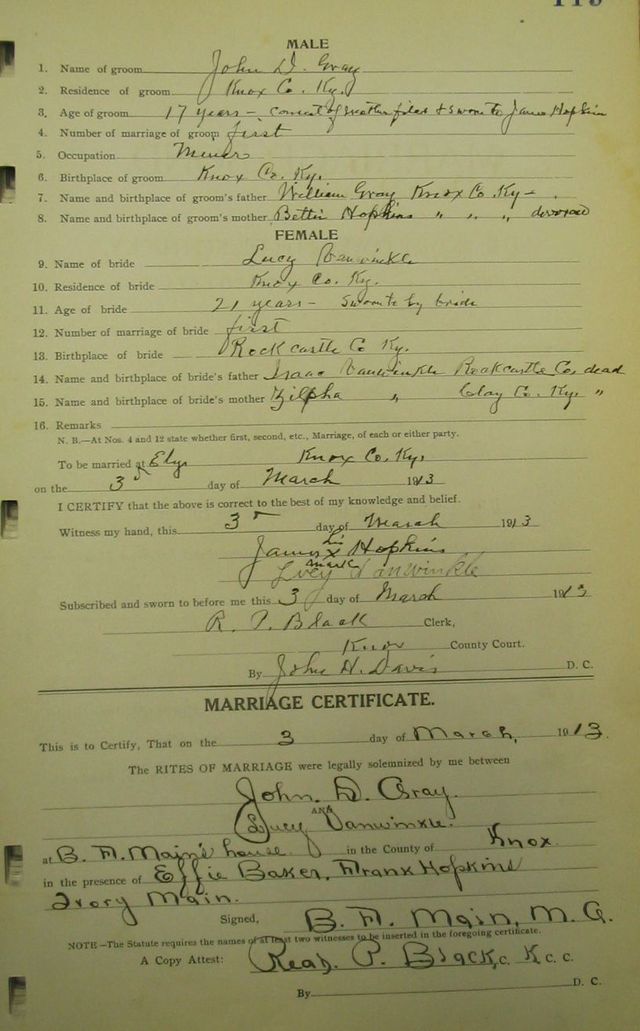 MALE
1. Name of groom John D. Gray
2. Residence of groom Knox Co. Ky.
3. Age of groom 17 years – consent of mother filed & sworn to James Hopkins
4. Number of marriage of groom first
5. Occupation Miner
6. Birthplace of groom Knox Co. Ky.
7. Name and birthplace of groom's father William Gray Knox Co. Ky –
8. Name and birthplace of groom's mother Bettie Hopkins " " " divorced
FEMALE
9. Name of bride Lucy Vanwinkle
10. Residence of bride Knox Co. Ky.
11. Age of bride 21 years – sworn to by bride
12. Number of marriage of bride first
13. Birthplace of bride Rockcastle Co Ky.
14. Name and birthplace of bride's father Isaac Vanwinkle Rockcastle Co. dead
15. Name and birthplace of bride's mother Zilpha " Clay Co. Ky. "
16. Remarks
N. B.—At Nos. 4 and 12 state whether first, second, etc., Marriage, of each or either party.
To be married at Elys Knox Co. Ky.
on the 3 day of March 1913
I CERTIFY that the above is correct to the best of my knowledge and belief.
Witness my hand, this 3 day of March 1913
James his x mark Hopkins
Lucy Vanwinkle
Subscribed and sworn to before me this 3 day of March 1913
R. P. Black Clerk,
Knox County Court.
By John H. Davis D. C.
MARRIAGE CERTIFICATE.
This is to Certify, That on the 3 day of March, 1913.
The RITES OF MARRIAGE were legally solemnized by me between
John. D. Gray.
AND
Lucy Vanwinkle.
at B. F. Main's house in the County of Knox
in the presence of Effie Baker, Frank Hopkins
Ivory Main.
Signed, B. F. Main, M. G.
NOTE—The Statute requires the names of at least two witnesses to be inserted in the foregoing certificate.
A Copy Attest: Read. P. Black, C. K. C. C.
By D. C.